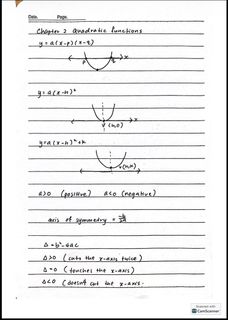 Date. Page.
Chapter 2 Quadratic functions
y = a(x-p)(x-q)
x
y = a(x-h)²
x
(h,0)
y = a(x-h)² + k
(h,k)
a>0 (positive) a<0 (negative)
axis of symmetry = -b/2a
Δ = b² - 4ac
Δ>0 (cuts the x-axis twice)
Δ=0 (touches the x-axis)
Δ<0 (doesn't cut the x-axis.
Scanned with
CamScanner